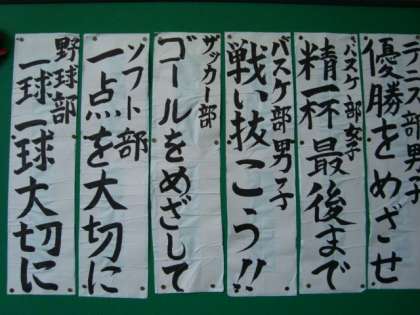 テニス部男子
優勝をめざせ
バスケ部女子
精一杯最後まで
バスケ部男子
戦い抜こう!!
サッカー部
ゴールをめざして
ソフト部
一点を大切に
野球部
一球一球大切に